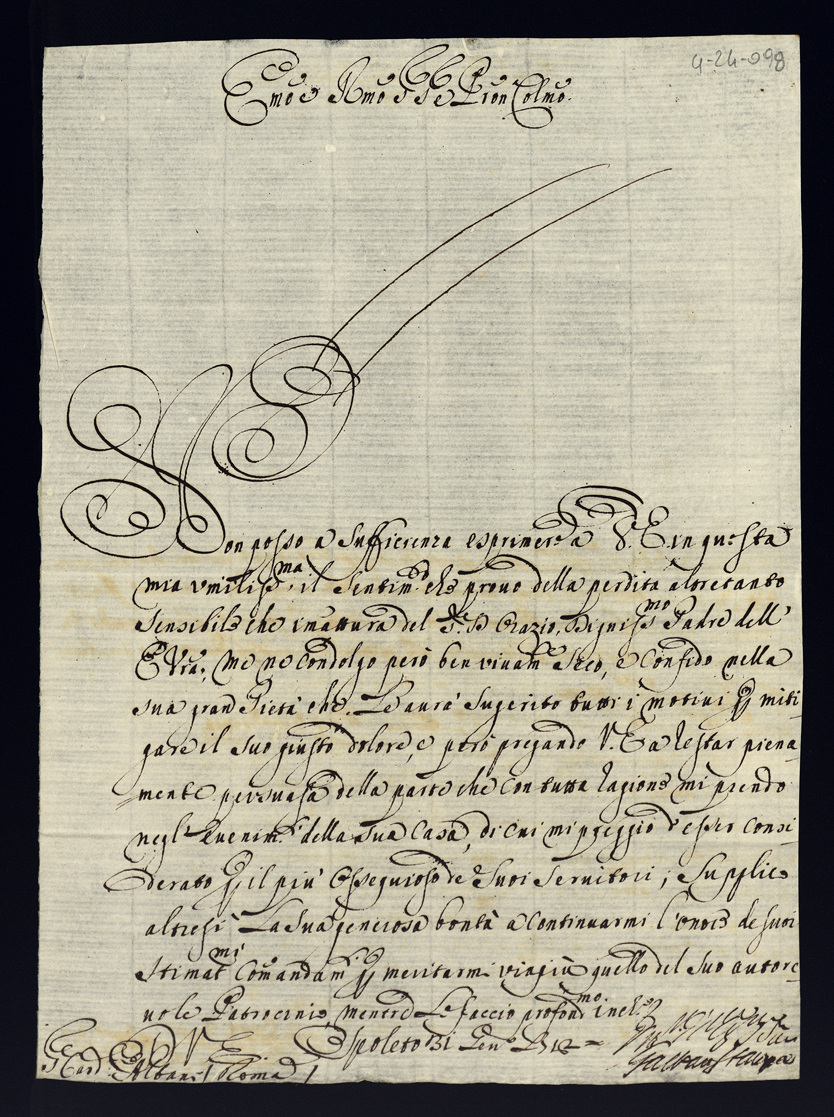 4-24-098
Emo e Rmo Sr Sr e Pron Colmo
Non posso a sufficienza esprimere a V. E. in questa
mia vmiliss.ma il sentim.to che prouo della perdita altretanto
sensibile che imattura del Sr. D Orazio, Digniss.mo Padre dell'
E Vra, me ne condolgo però ben viuam.te seco, e confido nella
sua gran Pietà che Le aurà sugerito tutti i motiui p miti-
gare il suo giusto dolore, e però pregando V. E a restar piena
mente persuasa della parte che con tutta ragione mi prendo
negl' Euenim.ti della sua Casa, di cui mi preggio d'esser consi-
derato p il più ossequioso de suoi seruitori, supplico
altresi La sua generosa bontà a continuarmi l'onore de suoi
stimat.mi Comandam.ti p meritarmi viepiù quello del suo autore
uole Patrocinio, mentre Le faccio profond.mo inch.o
D V E
Spoleto 31 Gen.o 1712
Card. Albani Roma